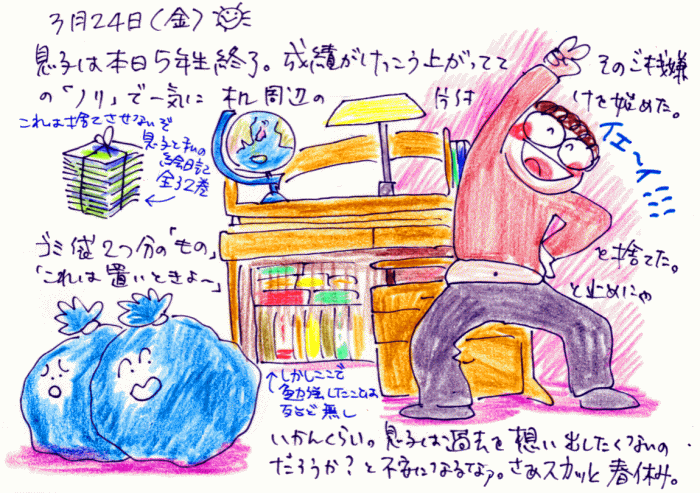 3月24日(金)
息子は本日5年生終了。成績がけっこう上がってて そのご機嫌
の「ノリ」で一気に 机周辺の 片付けを始めた。
これは捨てさせないぞ
息子と私の
絵日記
全32巻
イエーイ!!!
ゴミ袋2つ分の「もの」を捨てた。
「これは置いときよ〜」と止めにゃ
↑しかしここで
勉強したことは
ほとんど無し
いかんくらい。息子は過去を想い出したくないの
だろうか?と不安になるなァ。さあスカッと春休み。